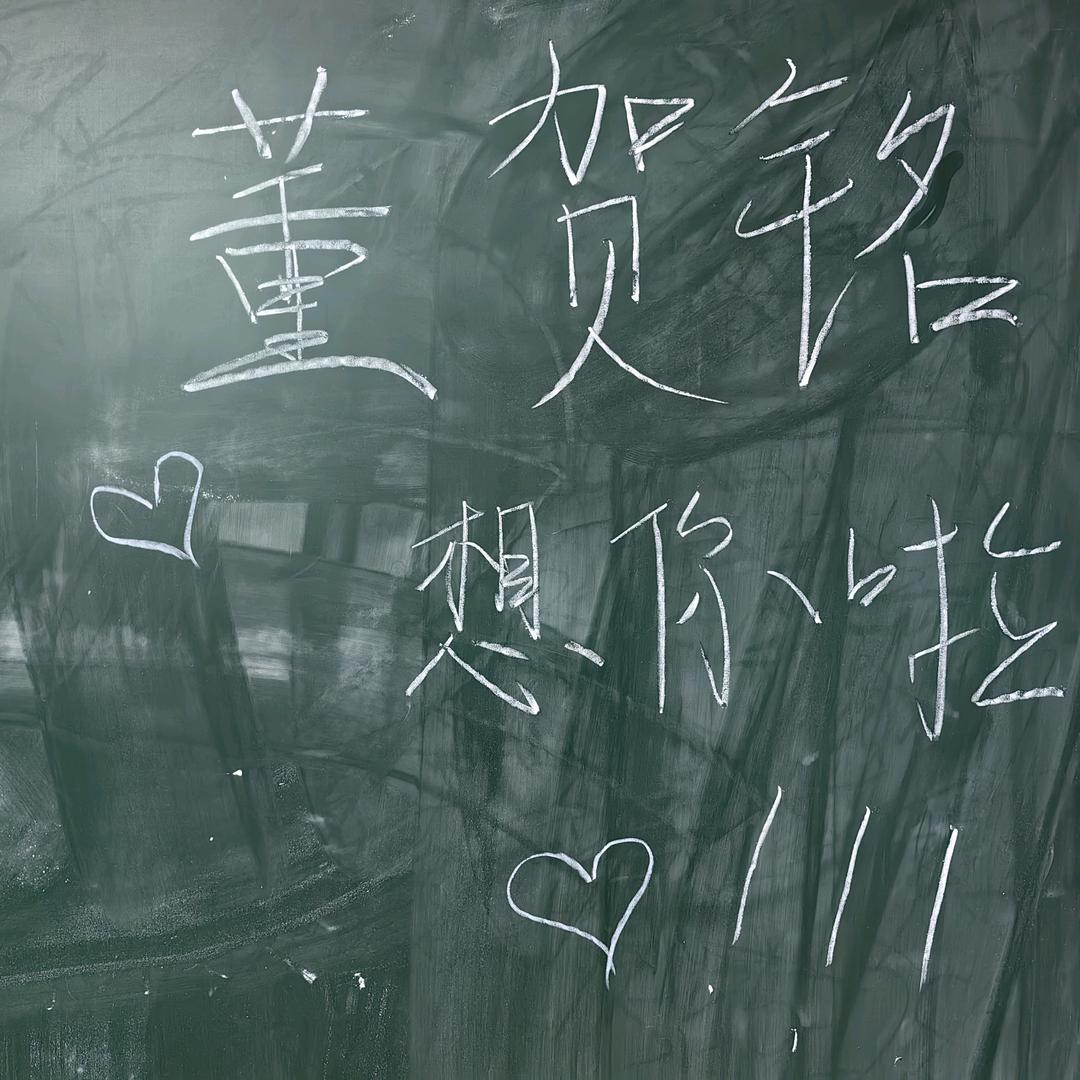 董贺铭
♡ 想你啦
♡!!!